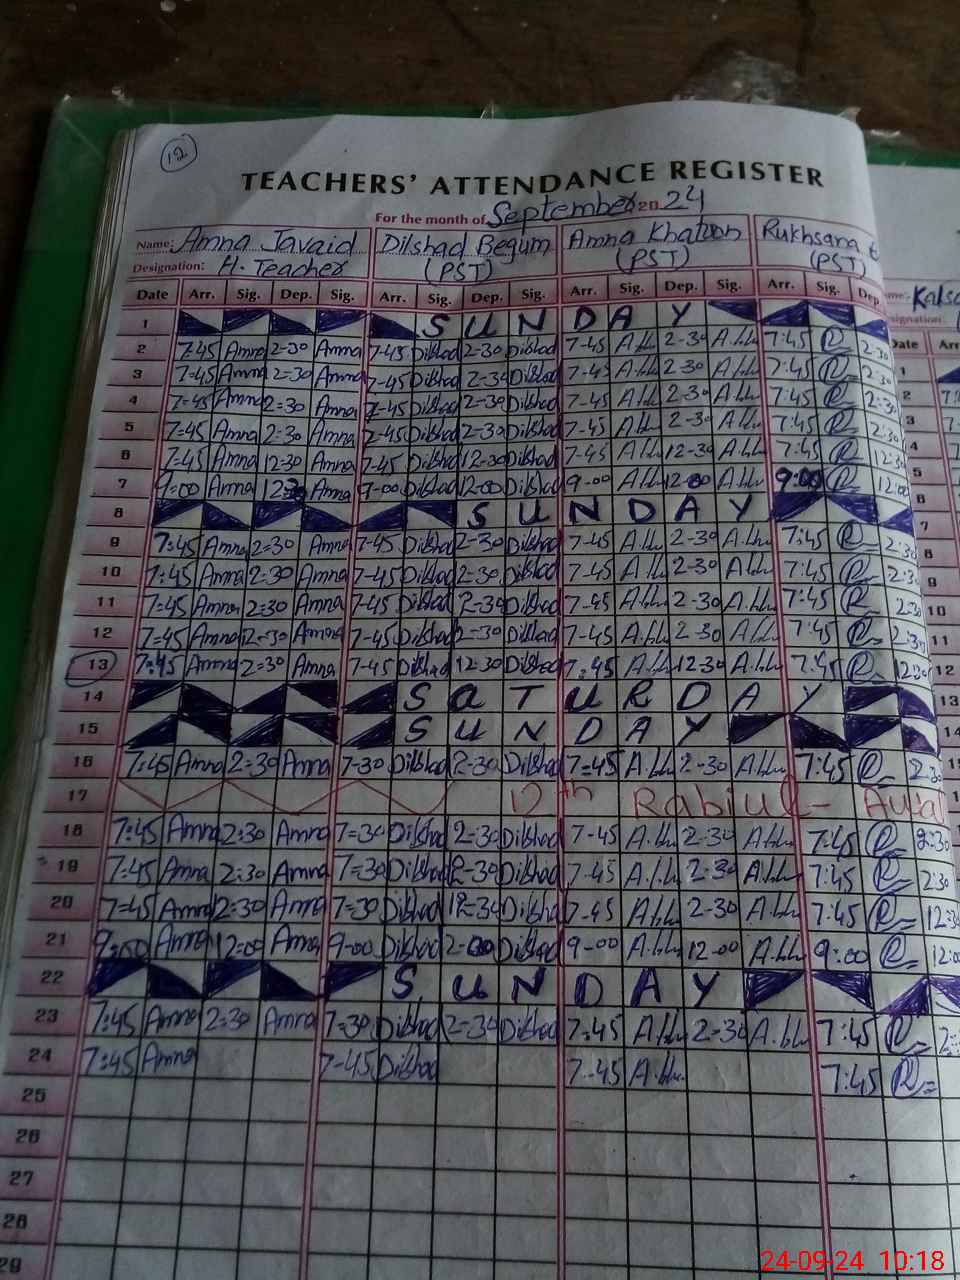 12
TEACHERS' ATTENDANCE REGISTER
For the month of September 20 24
Name: Amna Javaid Dilshad Begum Amna Khatoon Rukhsana
Designation: H. Teacher (PST) (PST) (PST)
Date Arr. Sig. Dep. Sig. Arr. Sig. Dep. Sig. Arr. Sig. Dep. Sig. Arr. Sig. Dep.
1 SUNDAY
2 7:45 Amna 2-30 Amna 7-45 Dilshad 2-30 Dilshad 7-45 2-30 7:45 2:30
3 7=45 Amna 2=30 Amna 7-45 Dilshad 2-30 Dilshad 7-45 2-30 7:45 2:30
4 7=45 Amna 2=30 Amna 7-45 Dilshad 2-30 Dilshad 7-45 2-30 7:45 2:30
5 7=45 Amna 2=30 Amna 7-45 Dilshad 2-30 Dilshad 7-45 2-30 7:45 2:30
6 7=45 Amna 12=30 Amna 7-45 Dilshad 12-30 Dilshad 7-45 12-30 7:45 12:30
7 9=00 Amna Amna 9-00 Dilshad 12-00 Dilshad 9-00 12-00 9:00 12:00
8 SUNDAY
9 7=45 Amna 2=30 Amna 7-45 Dilshad 2-30 Dilshad 7-45 2-30 7:45 2:30
10 7=45 Amna 2=30 Amna 7-45 Dilshad 2-30 Dilshad 7-45 2-30 7:45 2:3
11 7=45 Amna 2=30 Amna 7-45 Dilshad 2-30 Dilshad 7-45 2-30 7:45 2:30
12 7=45 Amna 2=30 Amna 7-45 Dilshad 2-30 Dilshad 7-45 2-30 7:45 2:30
13 7=45 Amna 2=30 Amna 7-45 Dilshad 12-30 Dilshad 7=45 12-30 7:45 12:30
14 SATURDAY
15 SUNDAY
16 7=45 Amna 2=30 Amna 7-30 Dilshad 2-30 Dilshad 7=45 2-30 7:45 2:30
17 12th Rabiul- Awal
18 7=45 Amna 2=30 Amna 7=30 Dilshad 2=30 Dilshad 7-45 2-30 7:45 2:30
19 7=45 Amna 2=30 Amna 7=30 Dilshad 2-30 Dilshad 7-45 2-30 7:45 2:30
20 7=45 Amna 12=30 Amna 7=30 Dilshad 12-30 Dilshad 7-45 2-30 7:45 12:3
21 9=00 Amna 12=00 Amna 9-00 Dilshad Dilshad 9-00 12-00 9:00 12:0
22 SUNDAY
23 7=45 Amna 2=30 Amna 7=30 Dilshad 2=30 Dilshad 7=45 2-30 7:45 2:
24 7=45 Amna 7-45 Dilshad 7-45 7:45
25
26
27
28
29
Date Arr
1
2
3
4
5
6
7
8
9
10
11
12
13
14
24-09-24 10:18